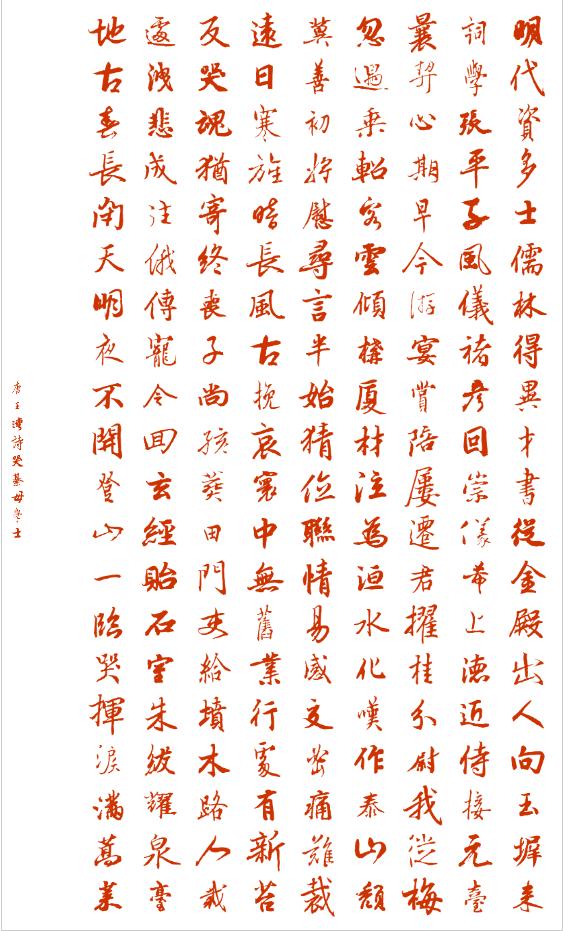 明代資多士儒林得異才書從金殿出人向玉墀来
詞學張平子風儀褚彥回崇儀希上德近侍接元臺
曩契心期早今游宴賞陪屢遷君擢桂分尉我從梅
忽過乘軺客雲傾構厦材注為洹水化嘆作泰山頹
冀善初將慰尋言半始猜位聯情易感交密痛難裁
遠日寒旌暗長風古挽哀寰中無舊業行處有新苔
反哭魂猶寄終喪子尚孩葬田門吏給墳木路人栽
遽洩悲成往俄傳寵令回玄經貽石室朱紱耀泉臺
地古春長閉天明夜不開登山一臨哭揮淚滿蒿萊
唐王灣詩哭綦毋學士